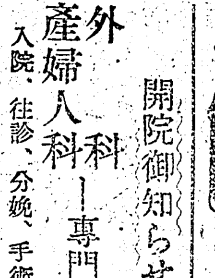 開院御知らせ
外科
産婦人科ー專門
入院、往診、分娩、手術